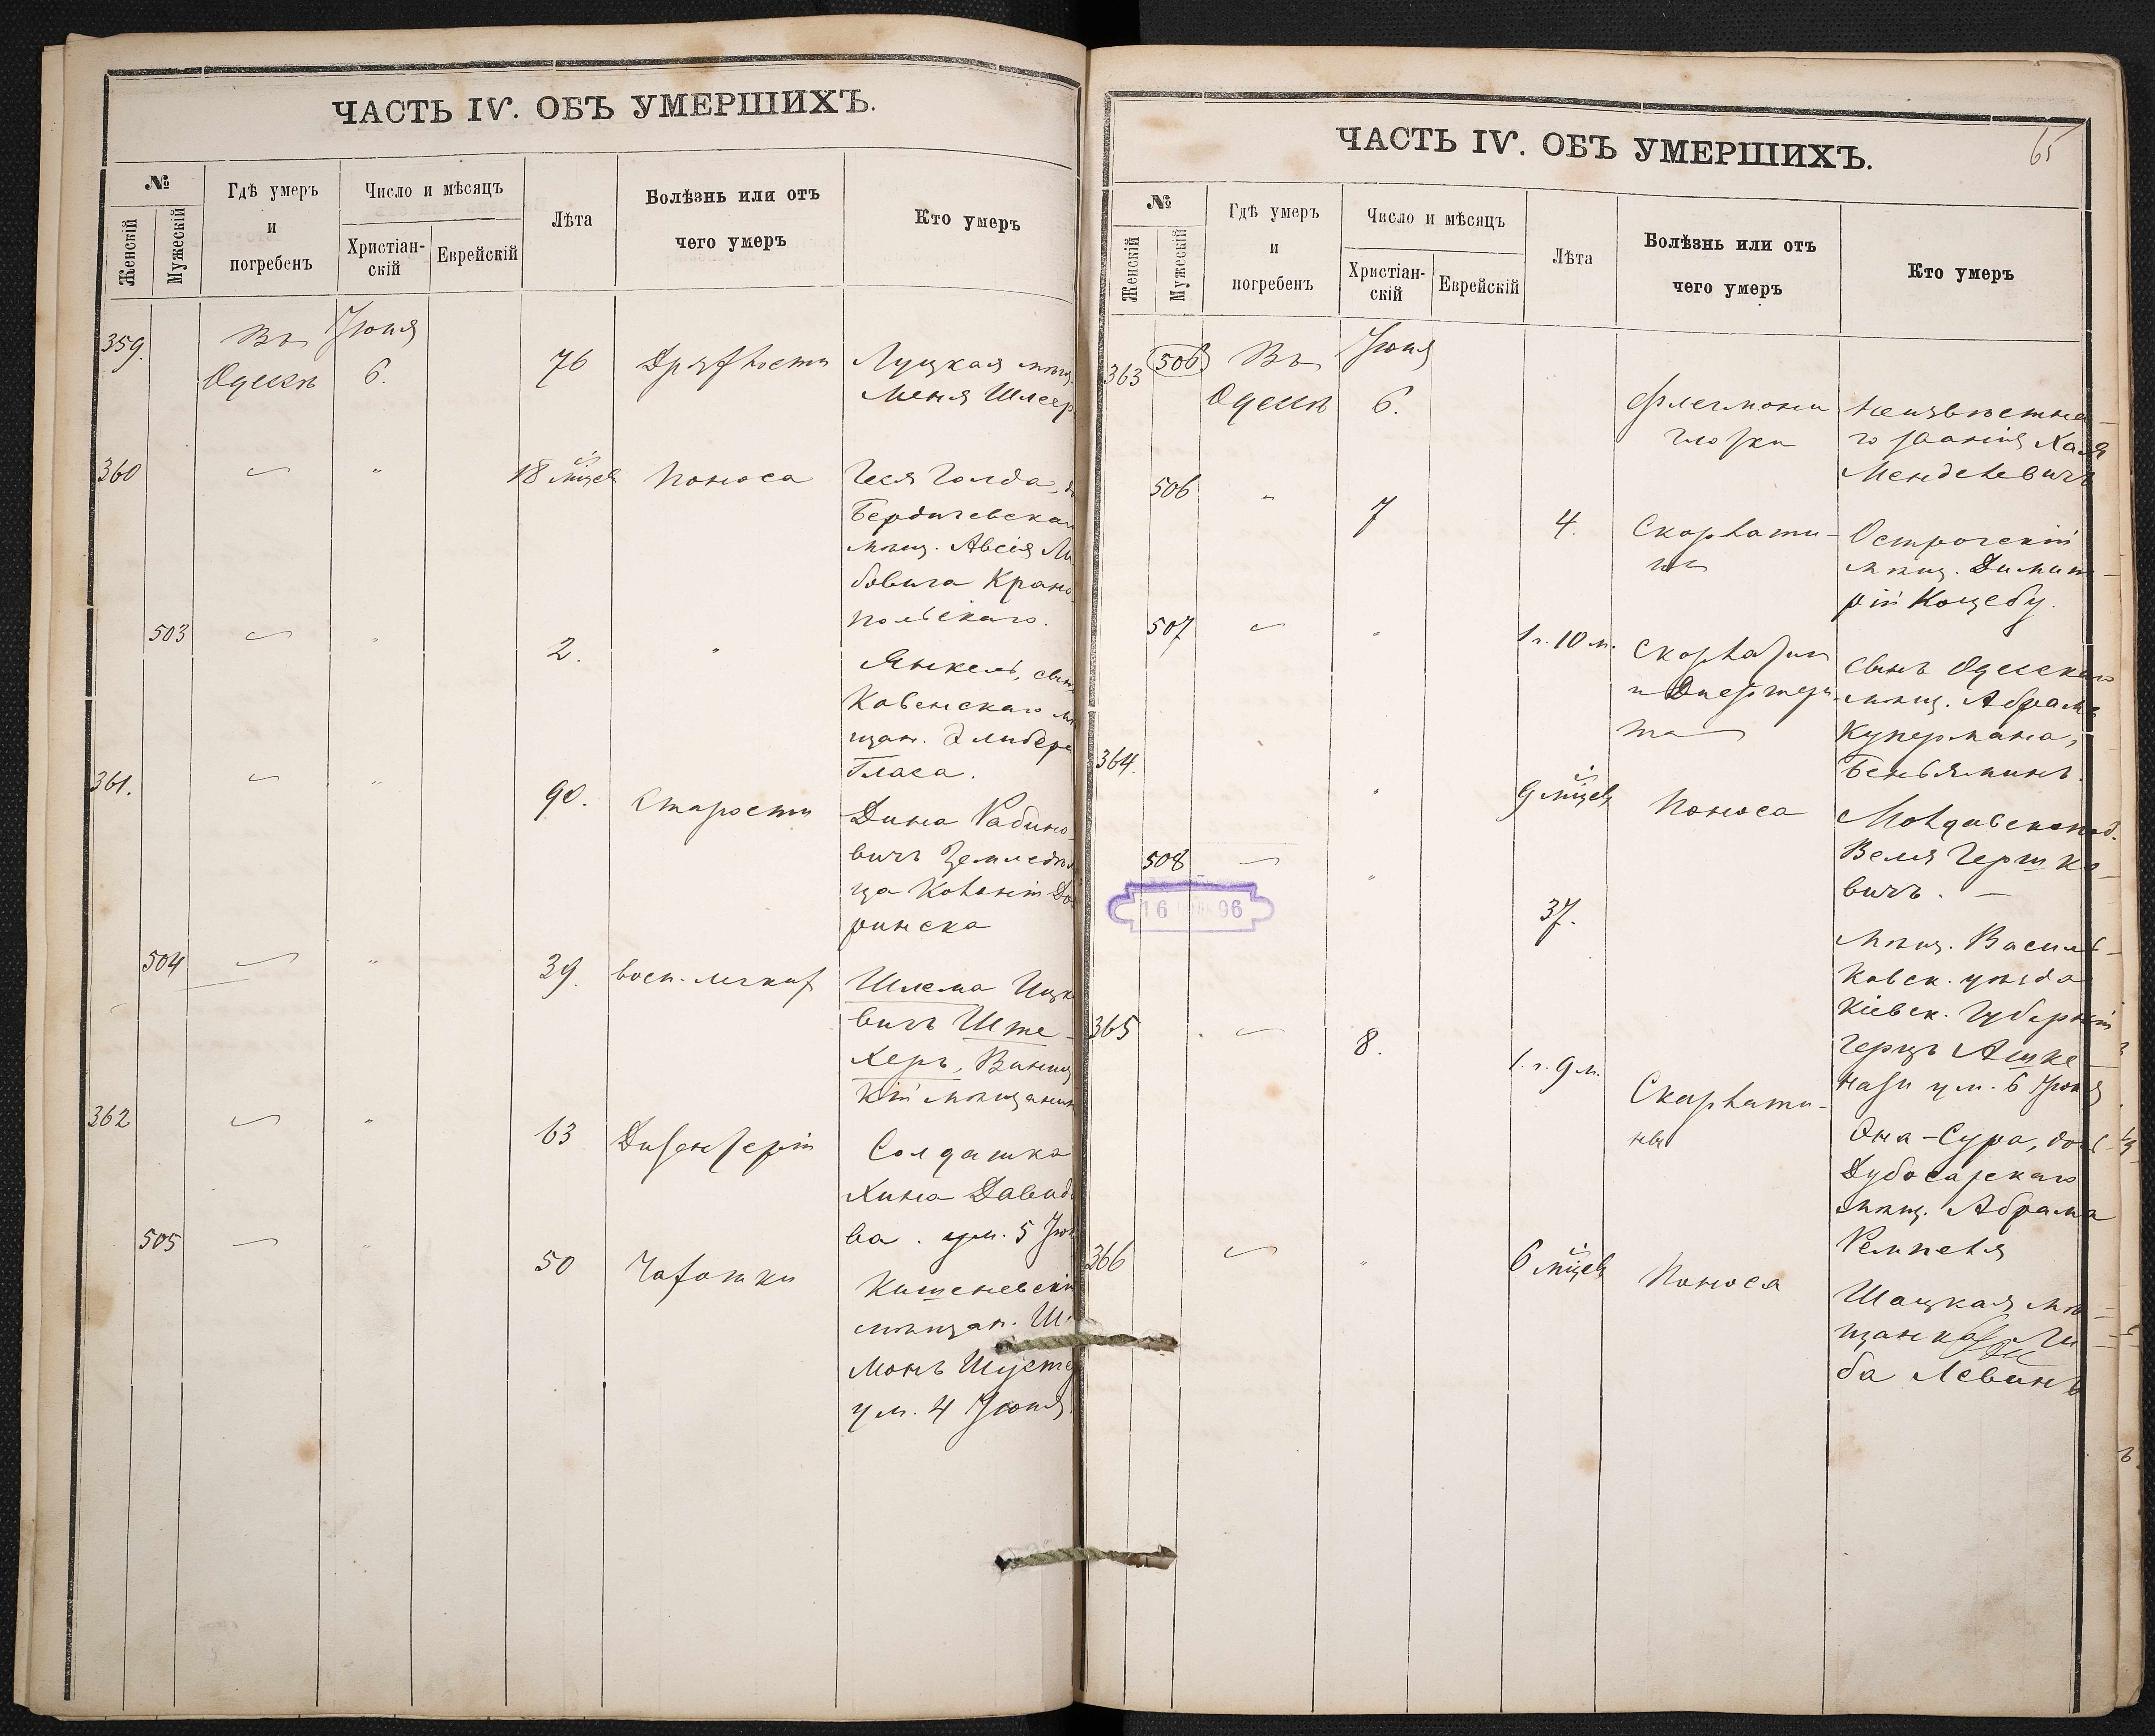 ЧАСТЬ IV. ОБЪ УМЕРШИХЪ.
№
Женскій
Мужескій
Гдѣ умеръ
и
погребенъ
Число и мѣсяцъ
Христіан-
скій
Еврейскій
Лѣта
Болѣзнь или отъ
чего умеръ
Кто умеръ
359.
Въ
Одессѣ
Іюня
6.
76
Дряхлости
Луцкая мѣщ.
Меня Шлеер
360
"
18 мѣсец
Поноса
Геся Голда,
Бердичевска
мѣщ. Авсія Ли
бовича Крано
польскаго.
503
"
2.
"
Янкель, сын
Ковенскаго мѣ
щан.
Гласа.
361.
"
90.
Старости
Дина Рабино-
вичъ Земледѣл
ца Колоніи До
ринска
504
"
39.
восп. легких
Шлема Ицк
вичъ Ште-
херъ, Винниц
кій мѣщанин
362
"
63
Дизентеріи
Солдатка
Хина Давид
ва. ум. 5 Iюн
505
"
50
Чахотки
Кишеневскій
мѣщан. Ши
монъ Шусте
ум. 4 Іюня.
ЧАСТЬ IV. ОБЪ УМЕРШИХЪ.
65
№
Женскій
Мужескій
Гдѣ умеръ
и
погребенъ
Число и мѣсяцъ
Христіан-
скій
Еврейскій
Лѣта
Болѣзнь или отъ
чего умеръ
Кто умеръ
363
506
Въ
Одессѣ
Іюня
6.
Флегмоны
Неизвѣстна-
го званія Хая
Менделевичъ
506
"
7
4.
Скарлати-
ны
Острогскій
мѣщ. Димит-
рій Коцебу.
507
"
1 г. 10 м.
Скарлатин
и Дифтери-
та
сынъ Одесскаго
мѣщ. Абрама
Купермана,
Беньяминъ.
364.
"
9 мѣсец
Поноса
Молдавсконод.
Веля Гершко-
вичъ. —
508
"
37.
мѣщ. Василь-
ковск. уѣзда
Кіевск. Губерніи
Герцъ Ашке-
нази ум. 6 Іюня
16 96
365
8.
1. г. 9 м.
Скарлати-
ны
Эна-Сура, доч
Дубосарскаго
мѣщ. Абрама
Ремпеля
366
"
6 мѣсец
Поноса
Шацкая мѣ-
щанка Ли
ба Левинъ